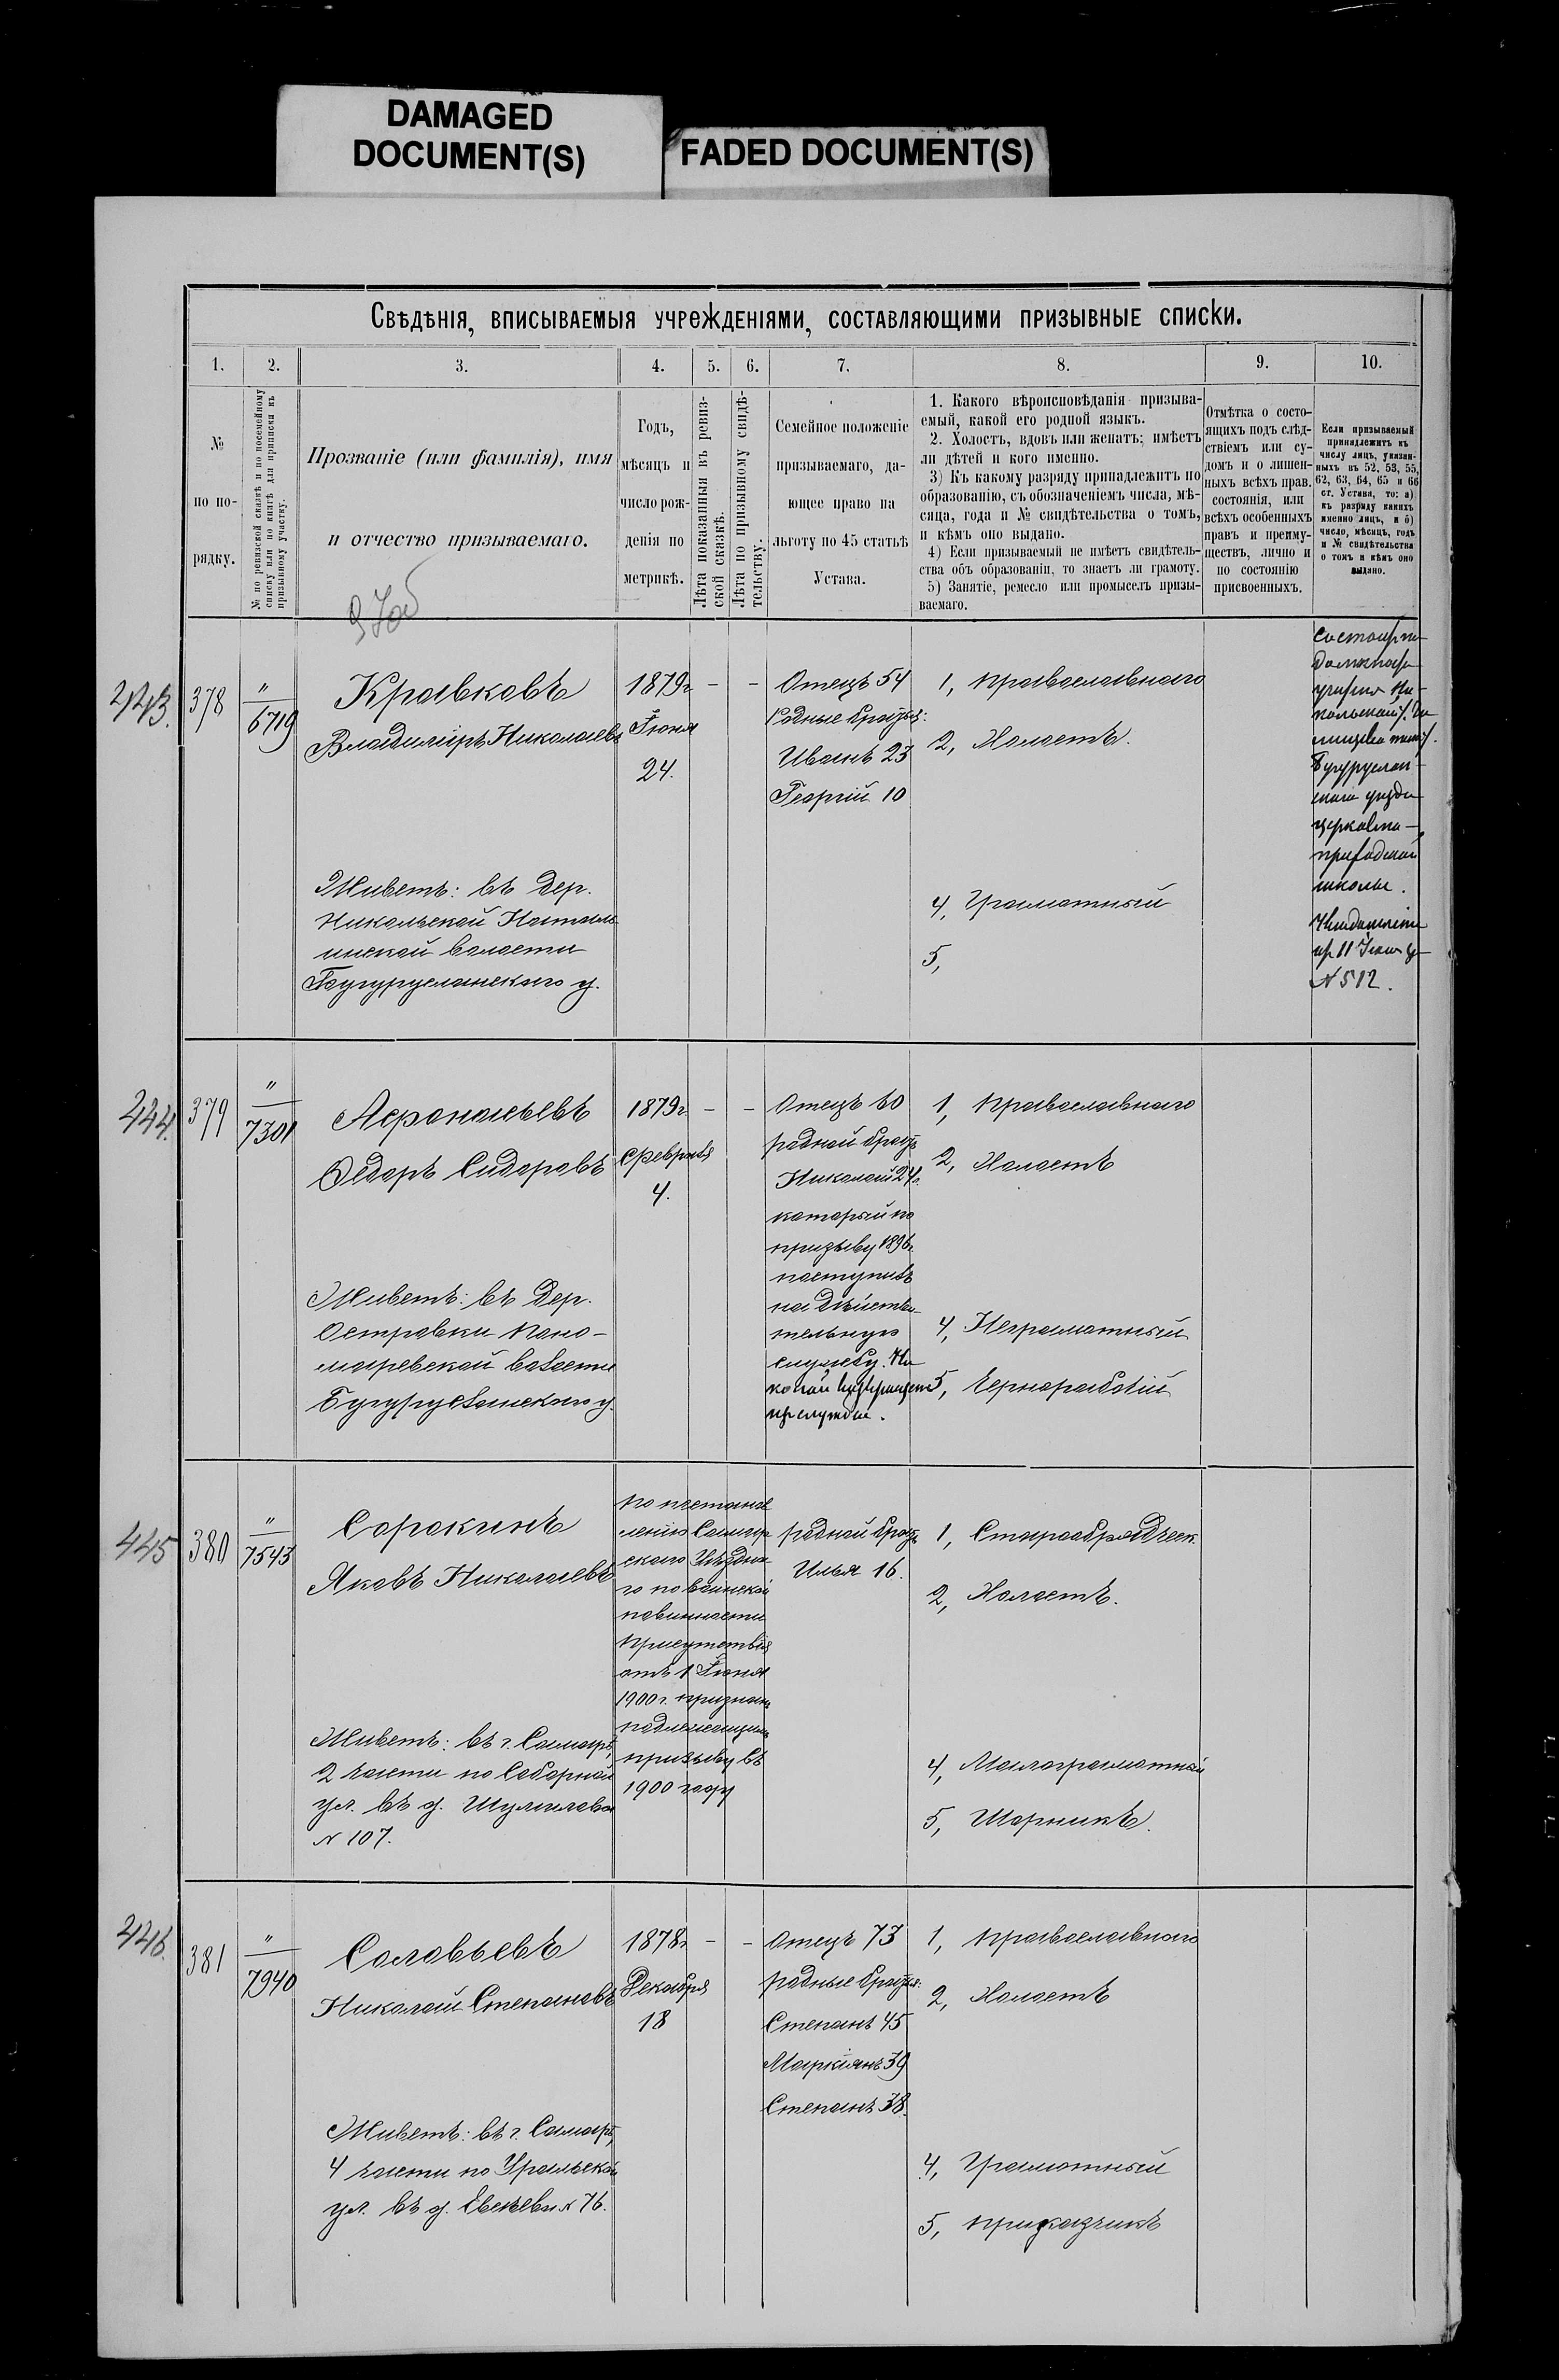 DAMAGED
DOCUMENT(S)
FADED DOCUMENT(S)
Свѣдѣнія, вписываемыя учрежденіями, составляющими призывные списки.
1.
2.
3.
4.
5.
6.
7.
8.
9.
10.
№
по по-
рядку.
№ по ревизской сказкѣ и по посемейному
списку или по книгѣ для приписки къ
призывному участку.
Прозваніе (или фамилія), имя
и отчество призываемаго.
Годъ,
мѣсяцъ и
число рож-
денія по
метрикѣ.
Лѣта показанныя въ ревиз-
ской сказкѣ.
Лѣта по призывному свидѣ-
тельству.
Семейное положеніе
призываемаго, да-
ющее право на
льготу по 45 статьѣ
Устава.
1. Какого вѣроисповѣданія призыва-
емый, какой его родной языкъ.
2. Холостъ, вдовъ или женатъ; имѣетъ
ли дѣтей и кого именно.
3) Къ какому разряду принадлежитъ по
образованію, съ обозначеніемъ числа, мѣ-
сяца, года и № свидѣтельства о томъ,
и кѣмъ оно выдано.
4) Если призываемый не имѣетъ свидѣтель-
ства объ образованіи, то знаетъ ли грамоту.
5) Занятіе, ремесло или промыселъ призы-
ваемаго.
Отмѣтка о состо-
ящихъ подъ слѣд-
ствіемъ или су-
домъ и о лишен-
ныхъ всѣхъ прав.
состоянія, или
всѣхъ особенныхъ
правъ и преиму-
ществъ, лично и
по состоянію
присвоенныхъ.
Если призываемый
принадлежитъ къ
числу лицъ, указан-
ныхъ въ 52, 53, 55,
62, 63, 64, 65 и 66
ст. Устава, то: а)
къ разряду какихъ
именно лицъ, и б)
число, мѣсяцъ, годъ
и № свидѣтельства
о томъ и кѣмъ оно
выдано.
443.
378
"
6719
Кравковъ
Владиміръ Николаевъ
Живетъ: въ дер.
Никольской
волости
Бугурусланскаго у.
1879г.
Іюня
24.
–
–
Отецъ 54
Родные братья:
Иванъ 23
Георгій 10
1, Православнаго
2, Холостъ.
4, Грамотный
5,
Бугуруслан-
скаго уѣзда
церковно-
приходской
школы.
№ 512.
444.
379
"
7301
Афанасьевъ
Ѳедоръ Сидоровъ
Живетъ: въ дер.
Островки Поно-
маревской волости
Бугурусланскаго у.
1879г.
Февраля
4.
–
–
Отецъ 60
родной братъ
Николай 24г.
который по
призыву 1896г.
поступилъ
на дѣйстви-
тельную
службу.
1, Православнаго
2, Холостъ
4, Неграмотный
5, Чернорабочій
445
380
"
7543
Сорокинъ
Яковъ Николаевъ
Живетъ: въ г. Самарѣ,
2 части по Соборной
ул. въ д. Шумилова
№ 107.
По постанов-
ленію Самар-
скаго Уѣздна-
го по воинской
повинности
Присутствія
отъ 1 Іюня
1900г. признанъ
подлежащимъ
призыву въ
1900 году
родной братъ
Илья 16.
1, Старообрядческ.
2, Холостъ.
4, Малограмотный
5, Шорникъ.
446.
381
"
7940
Соловьевъ
Николай Степановъ
Живетъ: въ г. Самарѣ,
4 части по Уральской
ул. въ д. № 76.
1878г.
Декабря
18
–
–
Отецъ 73
родные братья:
Степанъ 45
Маркіянъ 39
Степанъ 38.
1, Православнаго
2, Холостъ
4, Грамотный
5, Приказчикъ